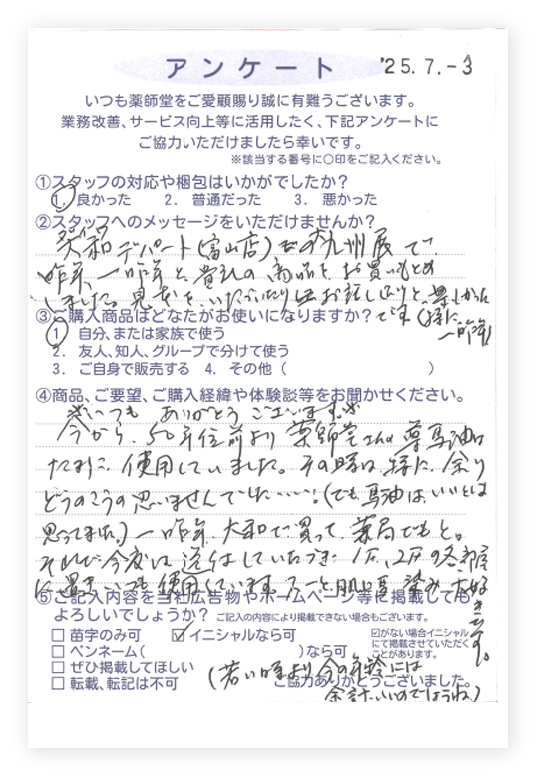 アンケート
'25.7.-3
いつも薬師堂をご愛顧賜り誠に有難うございます。
業務改善、サービス向上等に活用したく、下記アンケートに
ご協力いただけましたら幸いです。
※該当する番号に○印をご記入ください。
①スタッフの対応や梱包はいかがでしたか?
1. 良かった 2. 普通だった 3. 悪かった
②スタッフへのメッセージをいただけませんか?
大和デパート(富山店)での九州展で
昨年、一昨年と貴社の商品をお買いもとめ
しました。見本をいただいたりお話ししたりと、楽しかった
③ご購入商品はどなたがお使いになりますか?
です(特に
一昨年)
1 自分、または家族で使う
2. 友人、知人、グループで分けて使う
3. ご自身で販売する 4. その他( )
④商品、ご要望、ご購入経緯や体験談等をお聞かせください。
※いつも ありがとうございます※
今から、50年位前より薬師堂さんの尊馬油は
たまに、使用していました。その時は、特に、余り
どうのこうの思いませんでした……!(でも馬油は、いいとは
思ってました。)一昨年、大和で買って、薬局でもと。
それで今度は送付していただき 1F、2Fの各部屋
に置き、いつも使用しています。スーと肌に馴染み大好
きです。
⑤ご記入内容を当社広告物やホームページ等に掲載しても
よろしいでしょうか? ご記入の内容により掲載できない場合もございます。
□ 苗字のみ可 ☑ イニシャルなら可
☑がない場合イニシャル
にて掲載させていただく
ことがあります。
□ ペンネーム( )なら可
□ ぜひ掲載してほしい
□ 転載、転記は不可
(若い時より今の年齢には
ご協力ありがとうございました。
余計、いいのでしょうね)